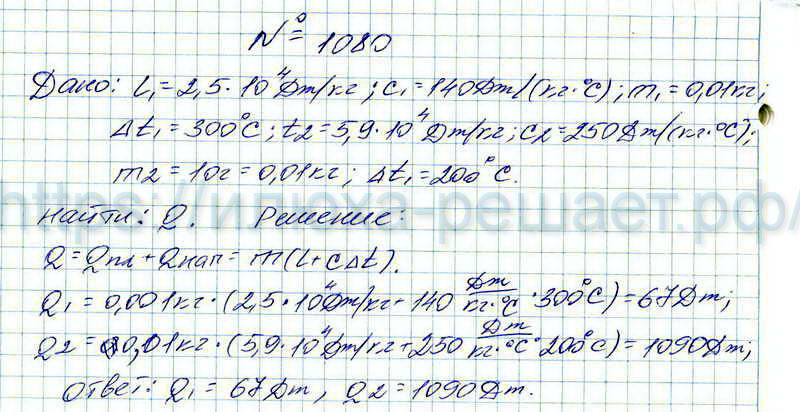 № 1080
Дано: L₁=2,5·10⁴Дж/кг; c₁=140Дж/(кг·°C); m₁=0,01кг;
Δt₁=300°C; t2=5,9·10⁴Дж/кг; c2=250Дж/(кг·°C);
m2=10г=0,01кг; Δt₁=200°C.
https://илюха-решает.рф/
Найти: Q. Решение:
Q=Qпл+Qнаг=m(L+cΔt).
Q₁=0,001кг·(2,5·10⁴Дж/кг+140 Дж/кг·°C·300°C)=67Дж;
Q2=0,01кг·(5,9·10⁴Дж/кг+250 Дж/кг·°C·200°C)=1090Дж;
Ответ: Q₁=67Дж, Q2=1090Дж.